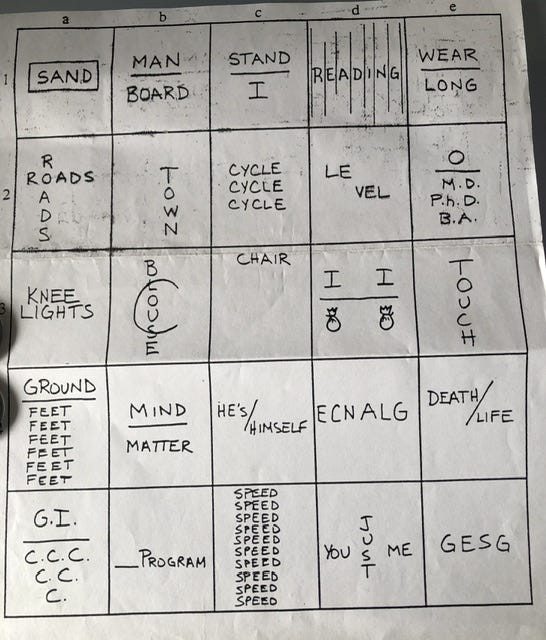 a b c d e
1
SAND
MAN
BOARD
STAND
I
READING
WEAR
LONG
2
R
ROADS
A
D
S
T
O
W
N
CYCLE
CYCLE
CYCLE
LE
VEL
O
M.D.
P.h.D.
B.A.
3
KNEE
LIGHTS
B
L
O
U
S
E
CHAIR
I I
T
O
U
C
H
GROUND
FEET
FEET
FEET
FEET
FEET
FEET
MIND
MATTER
HE'S/
HIMSELF
ECNALG
DEATH/
/LIFE
G.I.
C.C.C.
C.C.
C.
_PROGRAM
SPEED
SPEED
SPEED
SPEED
SPEED
SPEED
SPEED
SPEED
SPEED
SPEED
J
U
YOU S ME
T
GESG